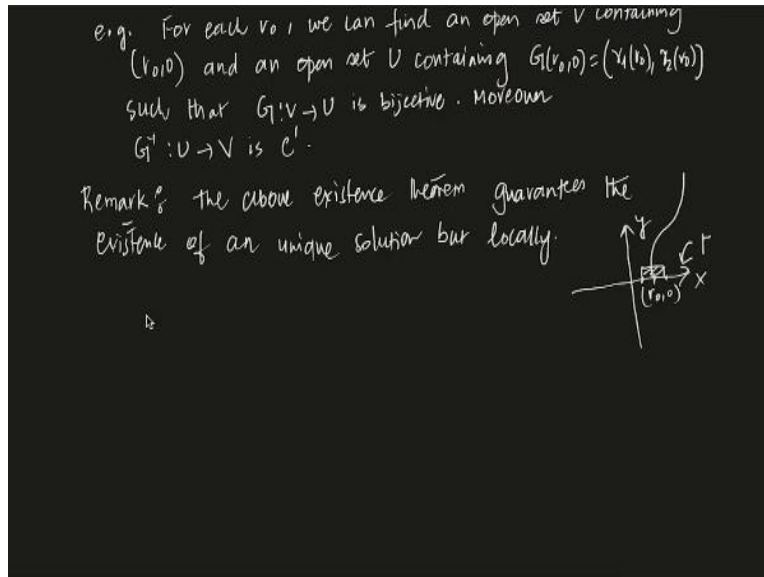 e.g. For each r₀, we can find an open set V containing
(r₀,0) and an open set U containing G(r₀,0)=(γ₁(r₀), γ₂(r₀))
such that G:V→U is bijective. Moreover
G⁻¹:U→V is C¹.
Remark: the above existence theorem guarantees the
existence of an unique solution but locally.
y
Γ
x
(r₀,0)